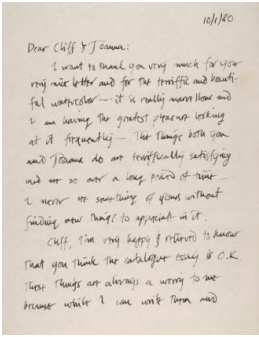 10/1/80
Dear Cliff & Joanna:
I want to thank you very much for your
very nice letter and for the terrific and beauti-
ful watercolor — it is really marvellous and
I am having the greatest pleasure looking
at it frequently — The things both you
and Joanna do are terrifically satisfying
and are so over a long period of time.
I never see something of yours without
finding new things to appreciate in it.
Cliff, I'm very happy & relieved to know
that you think the catalogue essay is O.K.
These things are always a worry to me
because while I can write them and